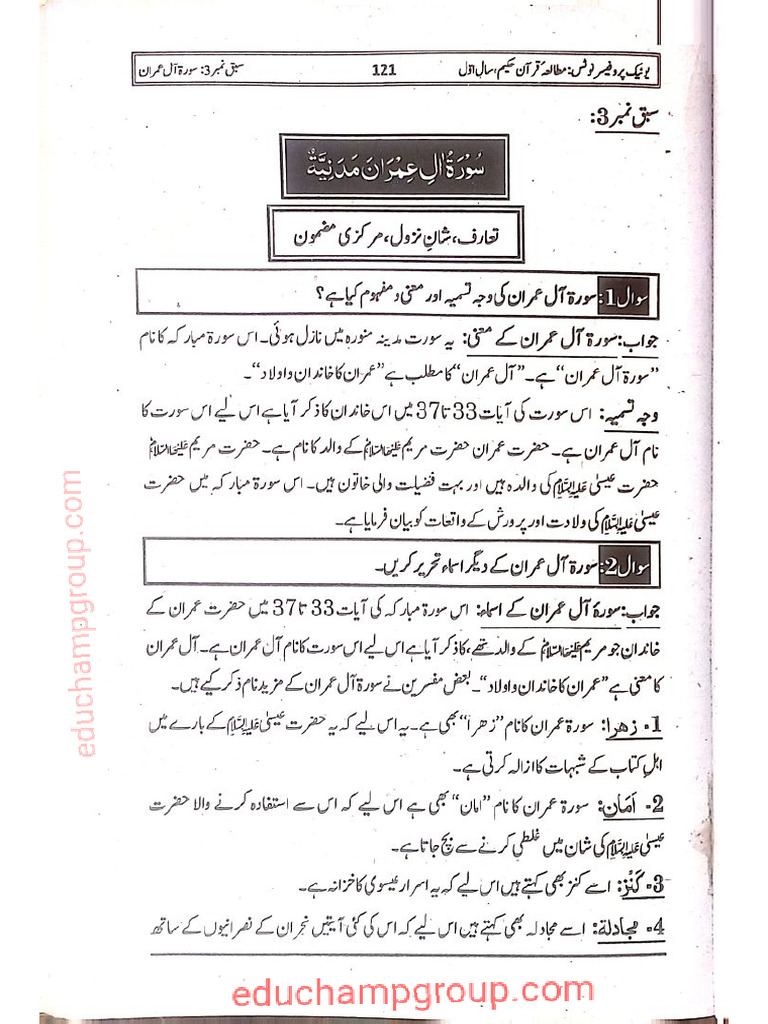 یونیک پروفیسر نوٹس: مطالعہ قرآن حکیم، سالِ اوّل 121 سبق نمبر 3: سورۃ آل عمران
سبق نمبر 3:
سُوْرَةُ اٰلِ عِمْرَانَ مَدَنِيَّةٌ
تعارف، شانِ نزول، مرکزی مضمون
سوال 1: سورۃ آل عمران کی وجہ تسمیہ اور معنی و مفہوم کیا ہے؟
جواب: سورۃ آل عمران کے معنی: یہ سورت مدینہ منورہ میں نازل ہوئی۔ اس سورۃ مبارکہ کا نام
”سورۃ آل عمران“ ہے۔ ”آل عمران“ کا مطلب ہے ”عمران کا خاندان و اولاد“۔
وجہ تسمیہ: اس سورت کی آیات 33 تا 37 میں اس خاندان کا ذکر آیا ہے اس لیے اس سورت کا
نام آل عمران ہے۔ حضرت عمران حضرت مریم علیہا السلام کے والد کا نام ہے۔ حضرت مریم علیہا السلام
حضرت عیسیٰ علیہ السلام کی والدہ ہیں اور بہت فضیلت والی خاتون ہیں۔ اس سورۃ مبارکہ میں حضرت
عیسیٰ علیہ السلام کی ولادت اور پرورش کے واقعات کو بیان فرمایا ہے۔
سوال 2: سورۃ آل عمران کے دیگر اسماء تحریر کریں۔
جواب: سورۂ آل عمران کے اسماء: اس سورۃ مبارکہ کی آیات 33 تا 37 میں حضرت عمران کے
خاندان جو مریم علیہا السلام کے والد تھے، کا ذکر آیا ہے اس لیے اس سورت کا نام آل عمران ہے۔ آل عمران
کا معنی ہے ”عمران کا خاندان و اولاد“۔ بعض مفسرین نے سورۃ آل عمران کے مزید نام ذکر کیے ہیں۔
1۔ زھرا: سورۃ عمران کا نام ”زھرا“ بھی ہے۔ یہ اس لیے کہ یہ حضرت عیسیٰ علیہ السلام کے بارے میں
اہلِ کتاب کے شبہات کا ازالہ کرتی ہے۔
2۔ اَمَان: سورۃ عمران کا نام ”امان“ بھی ہے اس لیے کہ اس سے استفادہ کرنے والا حضرت
عیسیٰ علیہ السلام کی شان میں غلطی کرنے سے بچ جاتا ہے۔
3۔ كَنْز: اسے کنز بھی کہتے ہیں اس لیے کہ یہ اسرار عیسوی کا خزانہ ہے۔
4۔ مجادلة: اسے مجادلہ بھی کہتے ہیں اس لیے کہ اس کی کئی آیتیں نجران کے نصرانیوں کے ساتھ
educhampgroup.com
educhampgroup.com